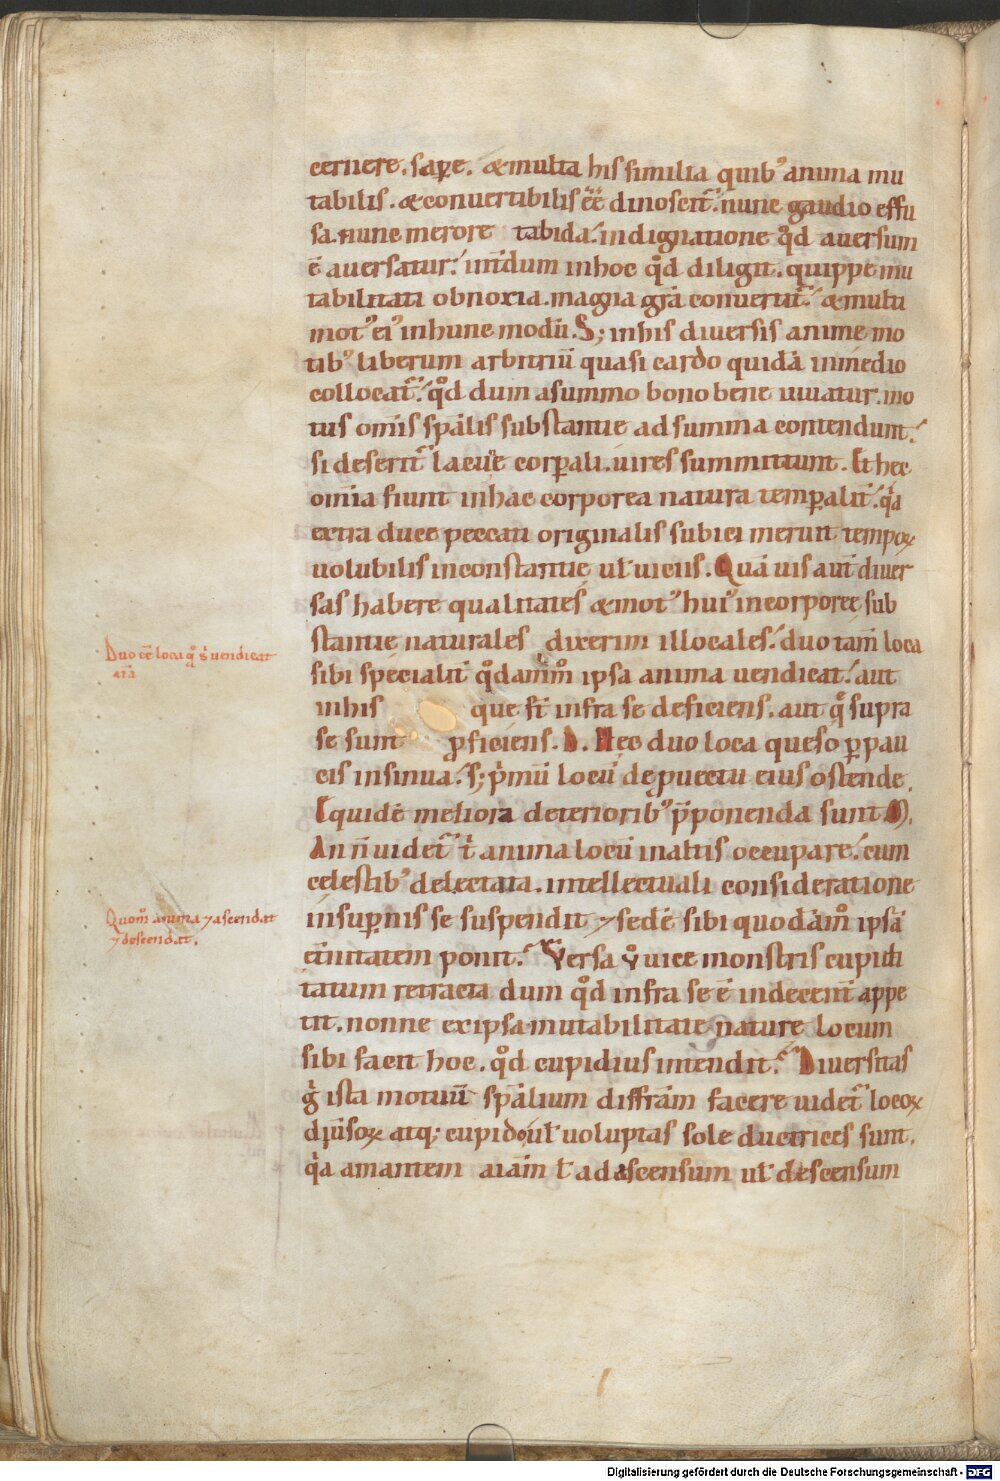 cernere. sapere. & multa his similia quib᾽ anima mu
tabilis. & convertibilis eē dinoscit᷑. nunc gaudio effu
sa. nunc merore tabida. indignatione qd̊ aversum
ē aversatur. int̄dum in hoc qd̊ diligit. quippe mu
tabilitati obnoxia. magna gr̄a convertit᷑. & multi
mot᾽ ei᾽ in hunc modū. S; in his diversis anime mo
tib᾽ liberum arbitriū quasi cardo quidā in medio
collocat᷑. qd̊ dum a summo bono bene iuvatur. mo
tus om̄is sp̄alis substantie ad summa contendunt.
si deserit᷑ lacue corꝑali. vires summittunt. Et hec
om̄ia fiunt in hac corporea natura temꝑalit᷑. qa
extra duce peccati originalis subici meruit tempoꝝ
volubilis inconstantie ul̄ vicis. Quāvis aut̄ diver
sas habere qualitates & mot᾽ hui᾽ incorporee sub
stantie naturales dixerim illocales. duo tam̄ loca
sibi specialit᷑ qd̊amm̊ ipsa anima vendicat. aut
in his que st̄ infra se deficiens. aut q̊ supra
se sunt ꝓficiens. D. Hec duo loca queso ꝑ pau
cis insinua. s; pͥmū locū de ꝓvectu eius ostende.
Iquidē meliora deteriorib᾽ p̄ponenda sunt. M.
An n̄ videt᷑ t' anima locū in altis occupare. cum
celestib᾽ delectata. intellectuali consideratione
in suꝑnis se suspendit ⁊ sedē sibi quodāmͦ ipsā
et̄nitatem ponit. Versa v̊ vice monstris cupidi
tatum retracta dum qd̊ infra se ē indecent᷑ appe
tit. nonne ex ipsa mutabilitate nature locum
sibi facit hoc. qd̊ cupidius intendit. Diversitas
gͥ ista motuū sp̄alium diffr̄am facere videt᷑ locoꝝ
diṽsoꝝ atq; cupido ul̄ voluptas sole ductrices sunt.
qͥa amantem aīam t̄ ad ascensum ul̄ descensum
Duo eē loca q̊ sͥ vendicat
aīa
Quom̊ anima ⁊ ascendat
⁊ descendat.
Digitalisierung gefördert durch die Deutsche Forschungsgemeinschaft - DFG